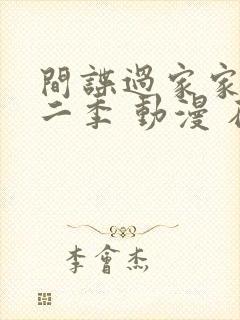 間諜過家家
二季 動漫
李會杰